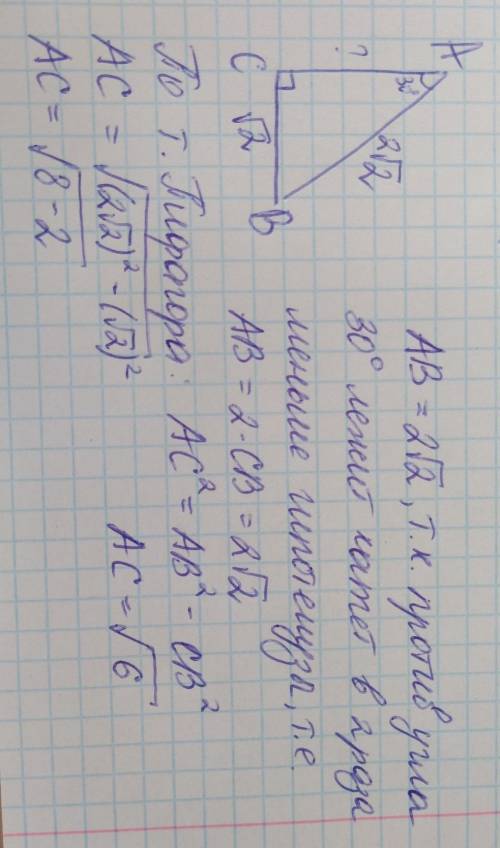 A
30°
2√2
?
C
√2
B
AB = 2√2, т.к. против угла
30° лежит катет в 2 раза
меньше гипотенузы, т.е.
AB = 2·CB = 2√2
По т. Пифагора: AC² = AB² - CB²
AC = √(2√2)² - (√2)²
AC = √8 - 2
AC = √6